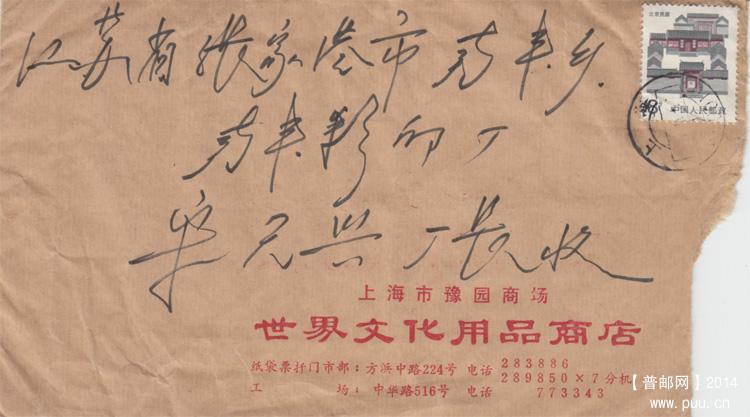 江苏省张家港市兆丰乡
兆丰彩印厂
宋元兴厂长收
北京民居
中国人民邮政
上海市豫园商场
世界文化用品商店
纸袋票扦门市部：方浜中路224号 电话 283886
289850×7分机
工 场：中华路516号 电话 773343
【普邮网】2014
www.puu.cn